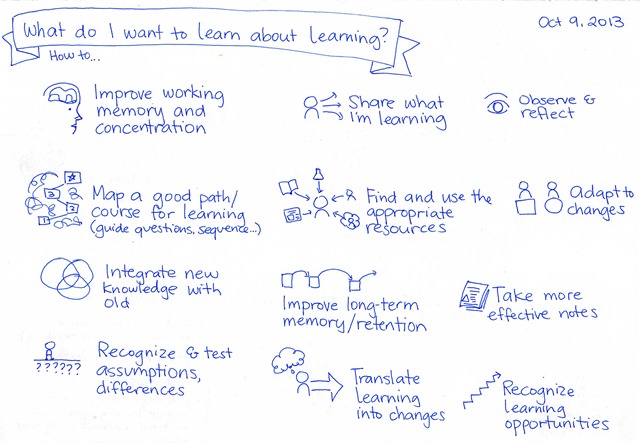 What do I want to learn about learning?
Oct 9, 2013
How to...
Improve working
memory and
concentration
Share what
I'm learning
Observe &
reflect
Map a good path/
course for learning
(guide questions, sequence...)
Find and use the
appropriate
resources
Adapt to
changes
Integrate new
knowledge with
old
Improve long-term
memory/retention
Take more
effective notes
??????
Recognize & test
assumptions,
differences
Translate
learning
into changes
Recognize
learning
opportunities